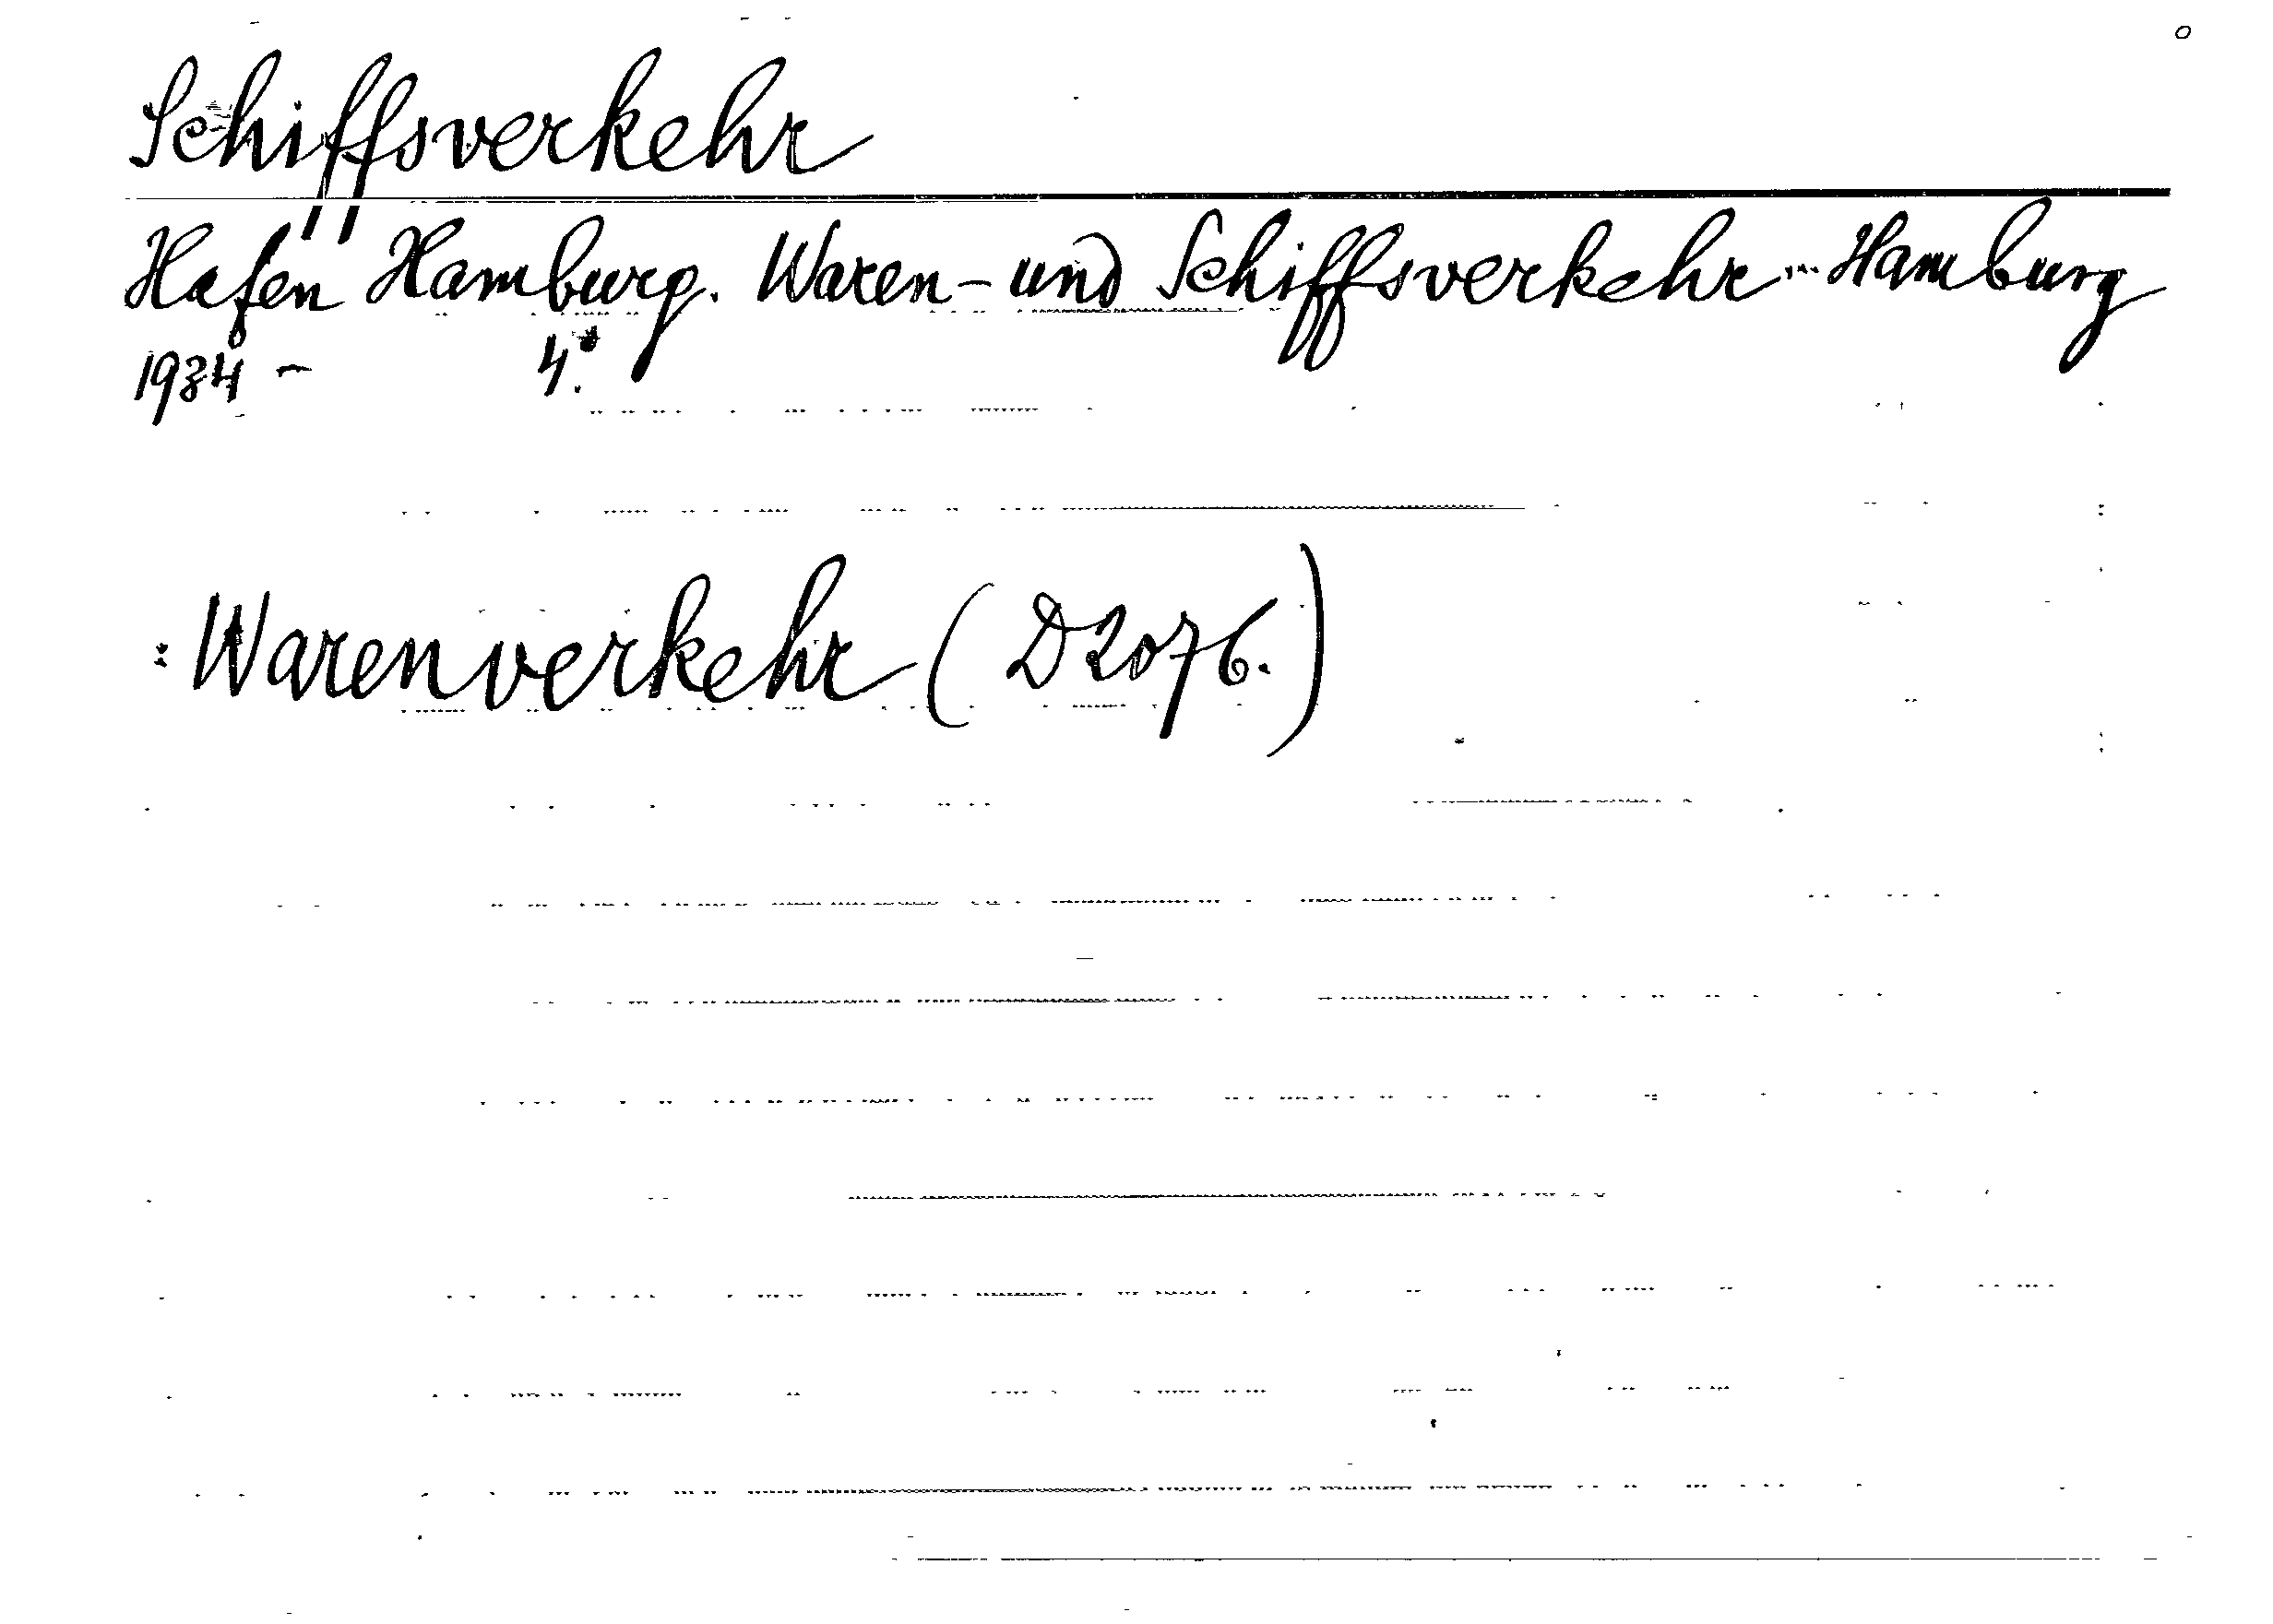 Schiffsverkehr
Hafen Hamburg. Waren- und Schiffsverkehr... Hamburg
1934 - 4°.
: Warenverkehr (D2076.)